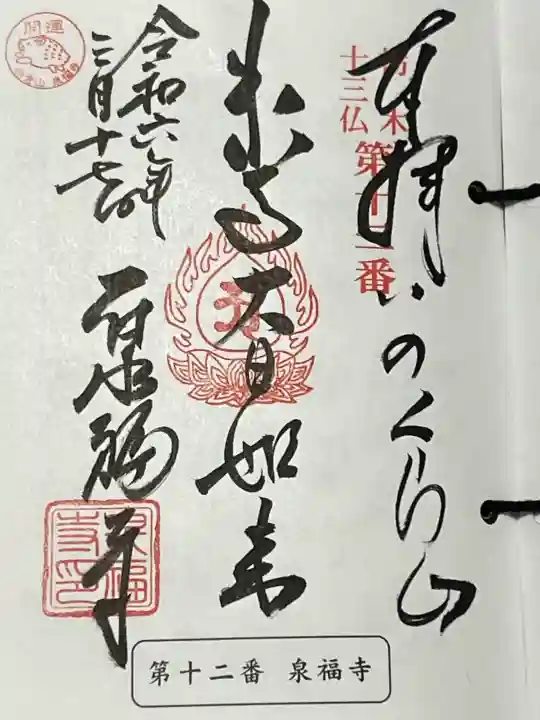 奉拝
いのくら山
栃木
十三仏
第十二番
大日如来
令和六年
三月十七日
泉福寺
開運
泉福寺印
第十二番 泉福寺